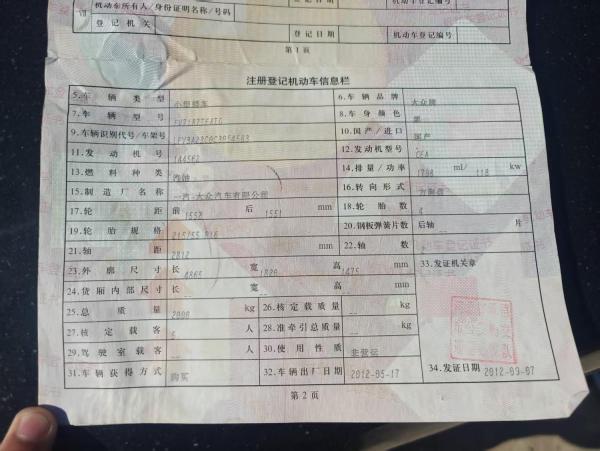 机动车所有人/身份证明名称/号码
登记机关
登记日期
机动车登记编号
第1页
注册登记机动车信息栏
5.车辆类型 小型轿车 6.车辆品牌 大众牌
7.车辆型号 8.车身颜色 黑
9.车辆识别代号/车架号 10.国产/进口 国产
11.发动机号 12.发动机型号 CEA
13.燃料种类 汽油 14.排量/功率 1798 ml/ 118 kw
15.制造厂名称 一汽-大众汽车有限公司 16.转向形式 方向盘
17.轮距 前 1552 后 1551 mm 18.轮胎数 4
19.轮胎规格 215/55 R16 20.钢板弹簧片数 后轴 片
21.轴距 2812 mm 22.轴数 2
23.外廓尺寸 长 4865 宽 1820 高 1475 mm 33.发证机关章
24.货厢内部尺寸 长 宽 高 mm
25.总质量 2000 kg 26.核定载质量 -- kg
27.核定载客 5 人 28.准牵引总质量 -- kg
29.驾驶室载客 -- 人 30.使用性质 非营运
31.车辆获得方式 购买 32.车辆出厂日期 2012-05-17 34.发证日期 2012-09-07
第2页